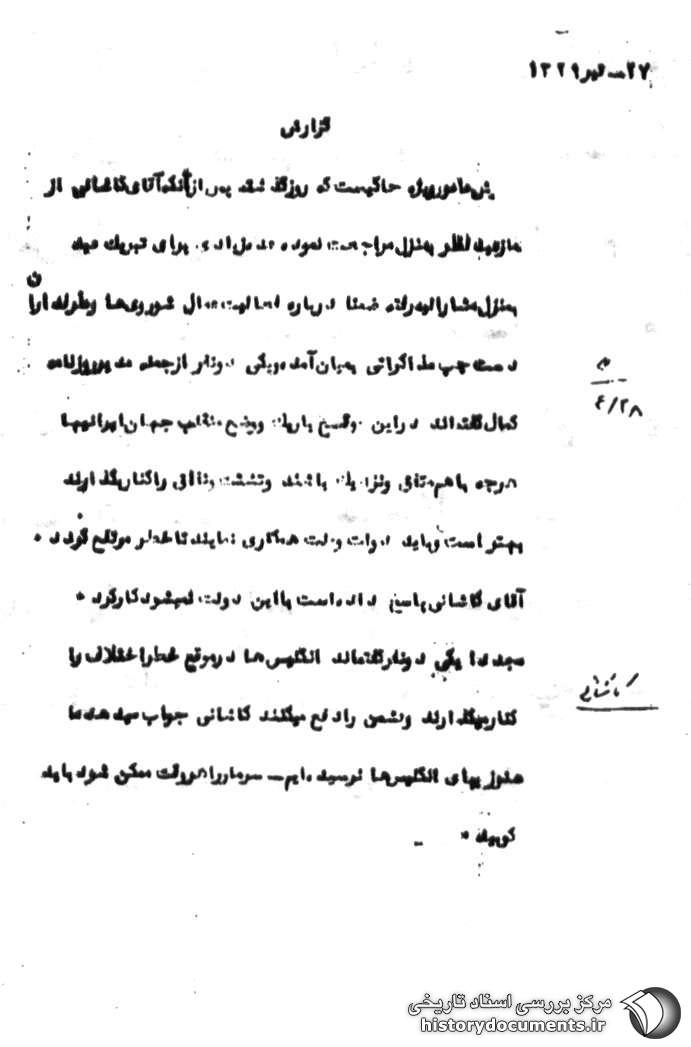 ۲۷ـ تیر ۱۳۲۹
گزارش
مامور ویژه حاکیست که روز گذشته پس از آنکه آقای کاشانی از
نماز عید فطر به منزل مراجعت نموده برای تبریک عید
به منزل مشارالیه رفته ضمنا درباره فعالیت عمال شوروی‌ها و طرفداران
دست چپ مذاکراتی بمیان آمده و یکی دو نفر از جمله مدیر روزنامه
کمال گفته‌اند در این موقع باریک و وضع منقلب جهان ایرانیها
هرچه باهم متفق و نزدیک باشند و تشتت و نفاق را کنار بگذارند
بهتر است و باید دولت و ملت همکاری نمایند تا خطر مرتفع گردد ٠
آقای کاشانی پاسخ داده است با این دولت نمیشود کار کرد ٠
مجددا یکی دو نفر گفته‌اند انگلیس‌ها در موقع خطر اختلاف را
کنار میگذارند و دشمن را دفع میکنند کاشانی جواب میدهد ما
هنوز بپای انگلیس‌ها نرسیده‌ایم ــ سر مار را هر وقت ممکن شود باید
کوبید ٠
۴/۲۸
کاشانی
مرکز بررسی اسناد تاریخی
historydocuments.ir